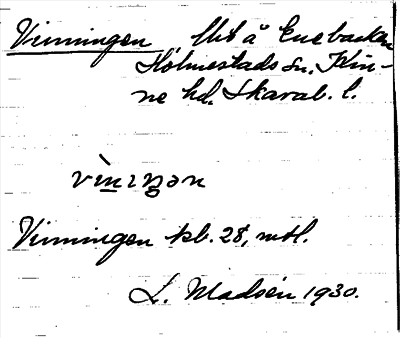 Vinningen Ut å Enebacken
Holmestads sn. Kin-
ne hd. Skarab. l.
vìnıŋən
Vinningen kb. 28, mol.
L. Madsén 1930.